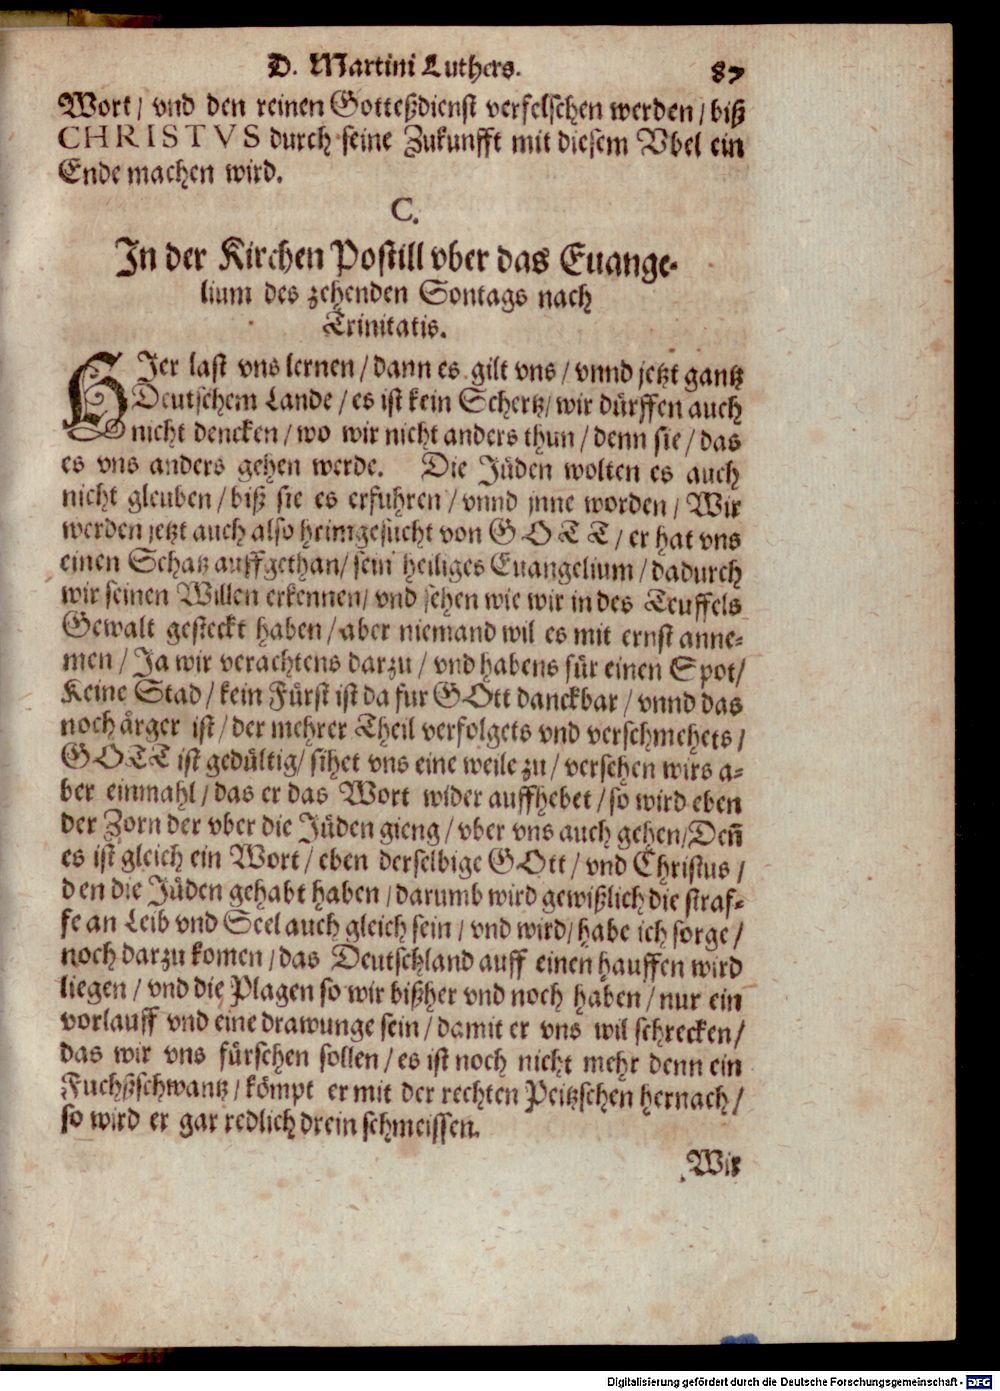 D. Martini Luthers. 87
Wort / vnd den reinen Gotteßdienst verfelschen werden / biß
CHRISTVS durch seine Zukunfft mit diesem Vbel ein
Ende machen wird.
C.
In der Kirchen Postill vber das Euange-
lium des zehenden Sontags nach
Trinitatis.
HJer last vns lernen / dann es gilt vns / vnnd jetzt gantz
Deutschem Lande / es ist kein Schertz / wir dürffen auch
nicht dencken / wo wir nicht anders thun / denn sie / das
es vns anders gehen werde. Die Jüden wolten es auch
nicht gleuben / biß sie es erfuhren / vnnd jnne worden / Wir
werden jetzt auch also heimgesucht von GOTT / er hat vns
einen Schatz auffgethan / sein heiliges Euangelium / dadurch
wir seinen Willen erkennen / vnd sehen wie wir in des Teuffels
Gewalt gesteckt haben / aber niemand wil es mit ernst anne-
men / Ja wir verachtens darzu / vnd habens für einen Spot /
Keine Stad / kein Fürst ist da fur GOtt danckbar / vnnd das
noch ärger ist / der mehrer Theil verfolgets vnd verschmehets /
GOTT ist gedültig / sihet vns eine weile zu / versehen wirs a-
ber einmahl / das er das Wort wider auffhebet / so wird eben
der Zorn der vber die Jüden gieng / vber vns auch gehen / Deñ
es ist gleich ein Wort / eben derselbige GOtt / vnd Christus /
den die Jüden gehabt haben / darumb wird gewißlich die straf-
fe an Leib vnd Seel auch gleich sein / vnd wird / habe ich sorge /
noch darzu komen / das Deutschland auff einen hauffen wird
liegen / vnd die Plagen so wir bißher vnd noch haben / nur ein
vorlauff vnd eine drawunge sein / damit er vns wil schrecken /
das wir vns fürsehen sollen / es ist noch nicht mehr denn ein
Fuchßschwantz / kömpt er mit der rechten Peitzschen hernach /
so wird er gar redlich drein schmeissen.
Wir
Digitalisierung gefördert durch die Deutsche Forschungsgemeinschaft - DFG